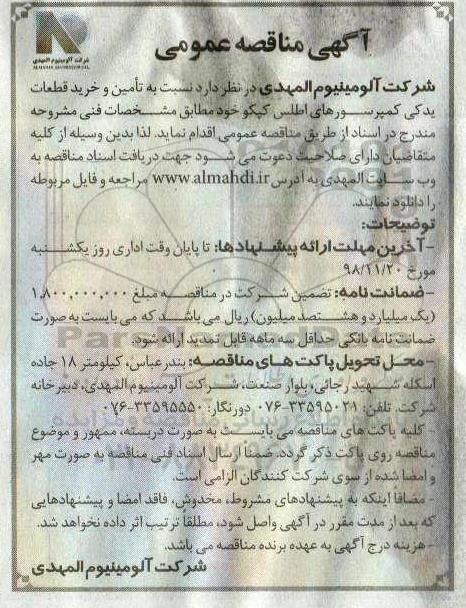 شرکت آلومینیوم المهدی
آگهی مناقصه عمومی
شرکت آلومینیوم المهدی در نظر دارد نسبت به تأمین و خرید قطعات
یدکی کمپرسورهای اطلس کپکو خود مطابق مشخصات فنی مشروحه
مندرج در اسناد از طریق مناقصه عمومی اقدام نماید. لذا بدین وسیله از کلیه
متقاضیان دارای صلاحیت دعوت می شود جهت دریافت اسناد مناقصه به
وب سایت المهدی به آدرس www.almahdi.ir مراجعه و فایل مربوطه
را دانلود نمایند.
توضیحات:
-آخرین مهلت ارائه پیشنهادها: تا پایان وقت اداری روز یکشنبه
مورخ ۹۸/۱۱/۲۰
-ضمانت نامه: تضمین شرکت در مناقصه مبلغ ۱,۸۰۰,۰۰۰,۰۰۰
(یک میلیارد و هشتصد میلیون) ریال می باشد که می بایست به صورت
ضمانت نامه بانکی حداقل سه ماهه قابل تمدید ارائه شود.
-محل تحویل پاکت های مناقصه: بندرعباس، کیلومتر ۱۸ جاده
اسکله شهید رجائی، بلوار صنعت، شرکت آلومینیوم المهدی، دبیرخانه
شرکت. تلفن: ۳۳۵۹۵۰۲۱-۰۷۶ دورنگار: ۳۳۵۹۵۵۵۰-۰۷۶
- کلیه پاکت های مناقصه می بایست به صورت دربسته، ممهور و موضوع
مناقصه روی پاکت ذکر گردد. ضمنا ارسال اسناد فنی مناقصه به صورت مهر
و امضا شده از سوی شرکت کنندگان الزامی است.
- مضافا اینکه به پیشنهادهای مشروط، مخدوش، فاقد امضا و پیشنهادهایی
که بعد از مدت مقرر در آگهی واصل شود، مطلقا ترتیب اثر داده نخواهد شد.
-هزینه درج آگهی به عهده برنده مناقصه می باشد.
شرکت آلومینیوم المهدی